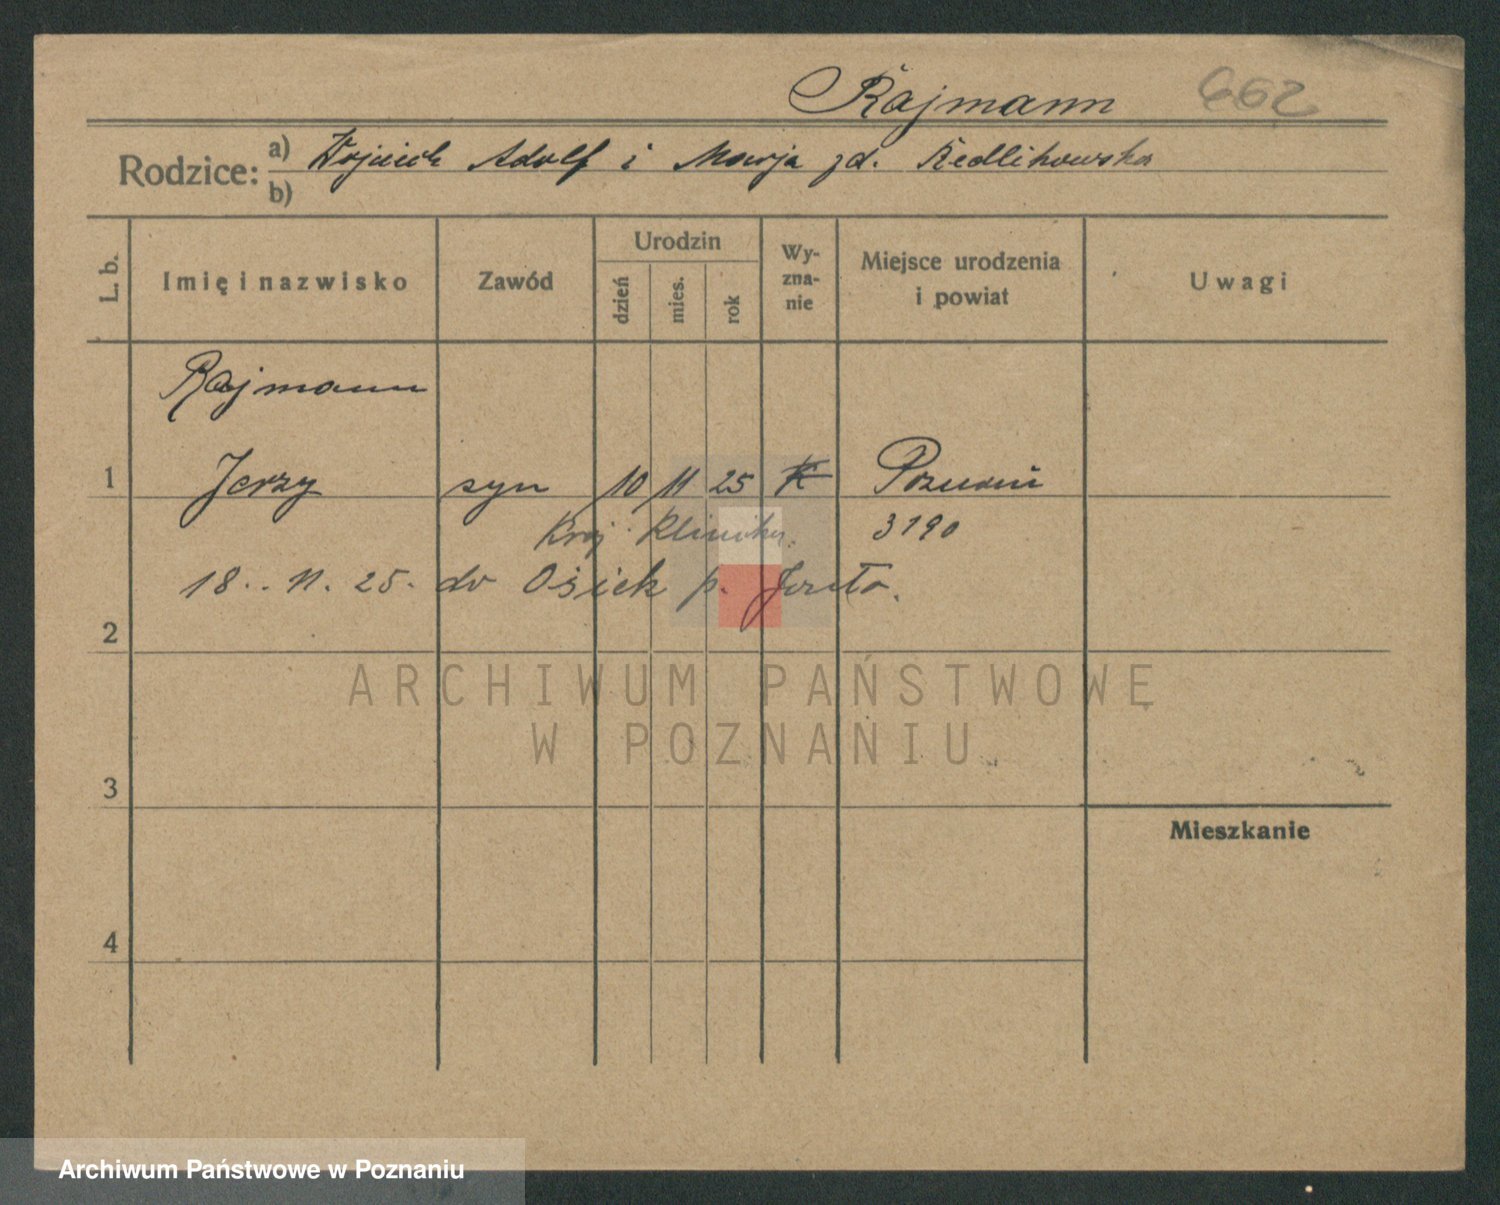 Rajmann 662
Rodzice: a) Wojciech Adolf i Marja zd. Redlikowska
b)
L. b. Imię i nazwisko Zawód Urodzin dzień mies. rok Wy-zna-nie Miejsce urodzenia i powiat Uwagi
Rajmann
1 Jerzy syn 10 11 25 K Poznań
Kraj. Klinika 3190
18. 11. 25. do Osiek p. Jasło.
2
ARCHIWUM PAŃSTWOWE
W POZNANIU
3
Mieszkanie
4
Archiwum Państwowe w Poznaniu